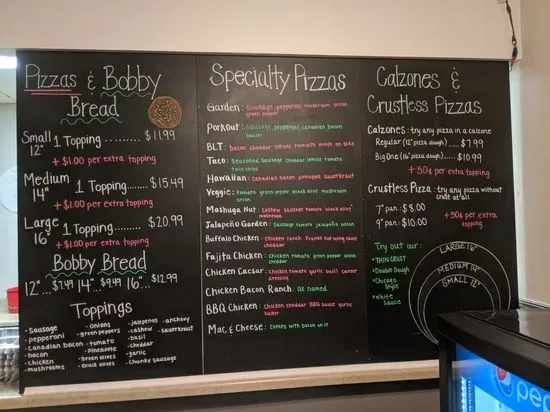 Pizzas & Bobby
Bread
Small 1 Topping ........ $11.99
12"
+ $1.00 per extra topping
Medium 1 Topping........ $15.49
14"
+ $1.00 per extra topping
Large 1 Topping........ $20.99
16"
+ $1.00 per extra topping
Bobby Bread
12"... $7.49 14" $9.49 16"... $12.99
Toppings
• Sausage
• pepperoni
• canadian bacon
• bacon
• chicken
• mushrooms
• Onions
• green peppers
• tomato
• Pineapple
• Green olives
• Black olives
• jalapenos
• cashew
• basil
• cheddar
• garlic
• Chunky sausage
• anchovy
• sauerkraut
Specialty Pizzas
Garden: Sausage pepperoni mushroom onion
green pepper
Porkout: Sausage pepperoni canadian bacon
bacon
BLT: bacon cheddar lettuce tomato mayo on side
Taco: Seasoned sausage cheddar lettuce tomato
taco chips
Hawaiian: canadian bacon pineapple sauerkraut
Veggie: tomato green pepper black olive mushroom
onion
Mashuga Nut: cashew sausage tomato black olive
mushroom
Jalapeño Garden: Sausage tomato jalapeño onion
Buffalo Chicken: Chicken ranch Franks hot wing sauce
cheddar
Fajita Chicken: Chicken tomato green pepper onion
cheddar
Chicken Caesar: Chicken tomato garlic basil caesar
dressing
Chicken Bacon Ranch: as named
BBQ Chicken: Chicken cheddar BBQ sauce garlic
butter
Mac & Cheese: comes with bacon on it
Calzones &
Crustless Pizzas
Calzones: try any pizza in a calzone
Regular (12" pizza dough)..... $7.99
Big One (16" pizza dough).... $10.99
+ 50¢ per extra topping
Crustless Pizza: try any pizza without
crust at all
7" pan: $8.00
9" pan: $10.00
+ 50¢ per extra
topping
Try out our:
• THIN CRUST
• Double Dough
• Chicago
Style
• White
Sauce
LARGE 16"
MEDIUM 14"
SMALL 12"
pepsi